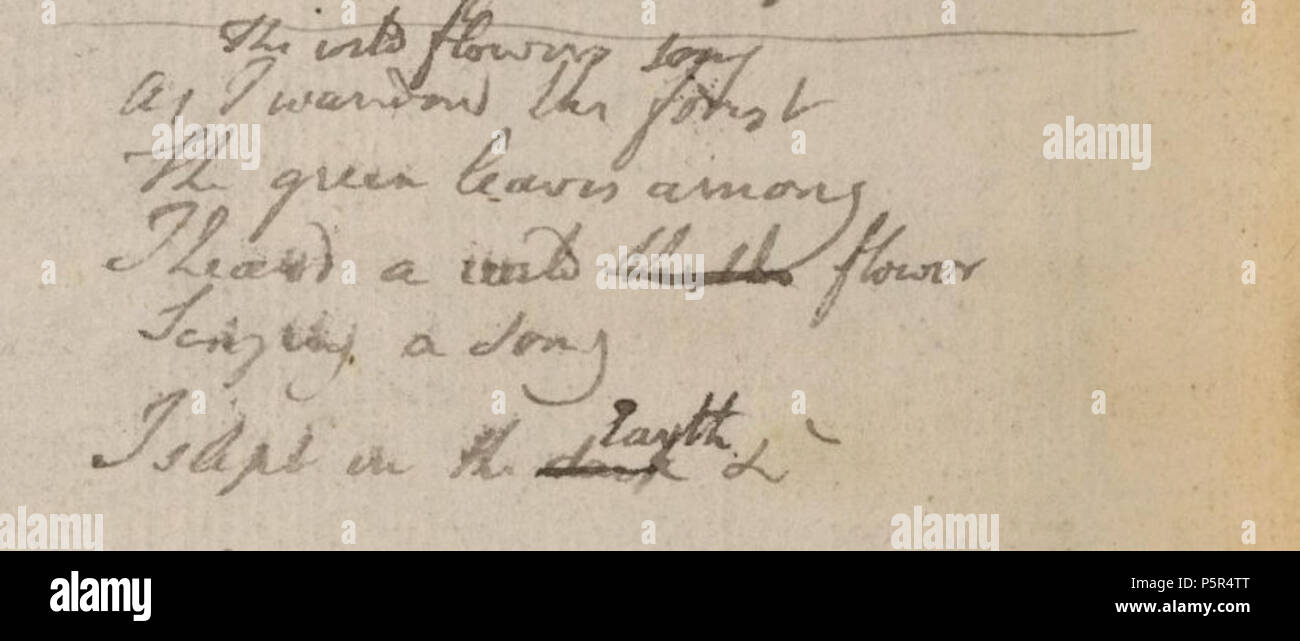 The wild flowers song
As I wanderd the forest
The green leaves among
I heard a wild flower
Singing a song
I slept in the Earth
dark &
alamy
Image ID: P5R4TT
www.alamy.com